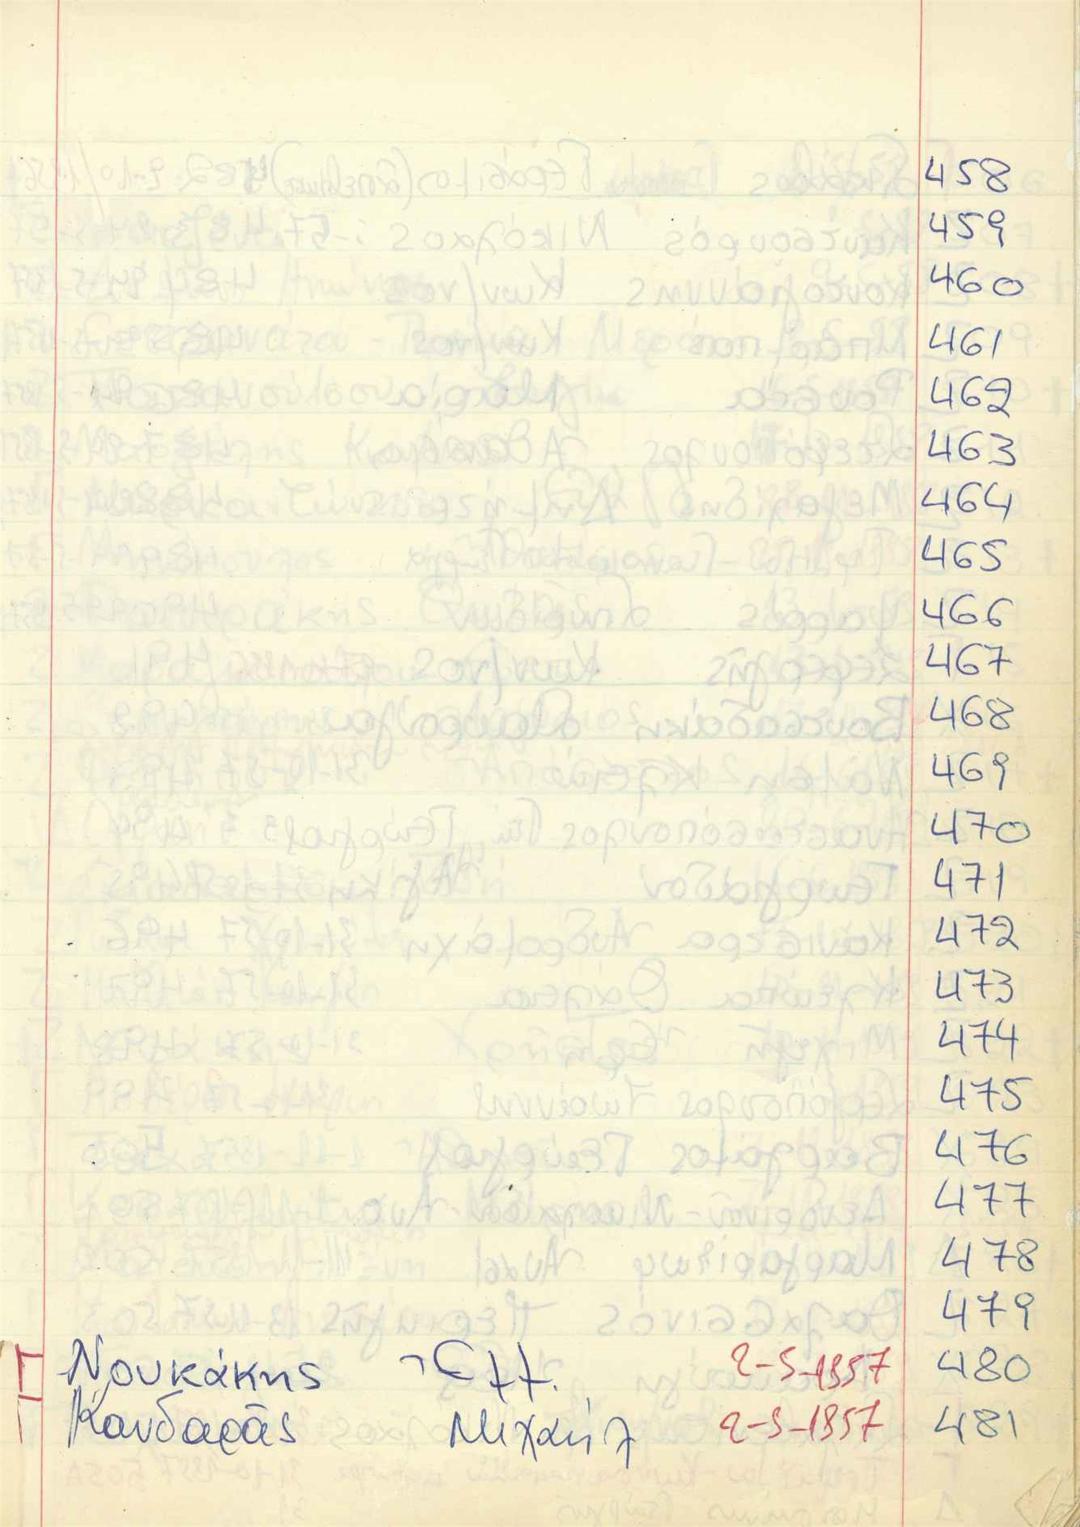 458
459
460
461
462
463
464
465
466
467
468
469
470
471
472
473
474
475
476
477
478
479
Γ Νουκάκης 2-5-1957 480
Γ Κανδαράς Μιχαήλ 2-5-1957 481